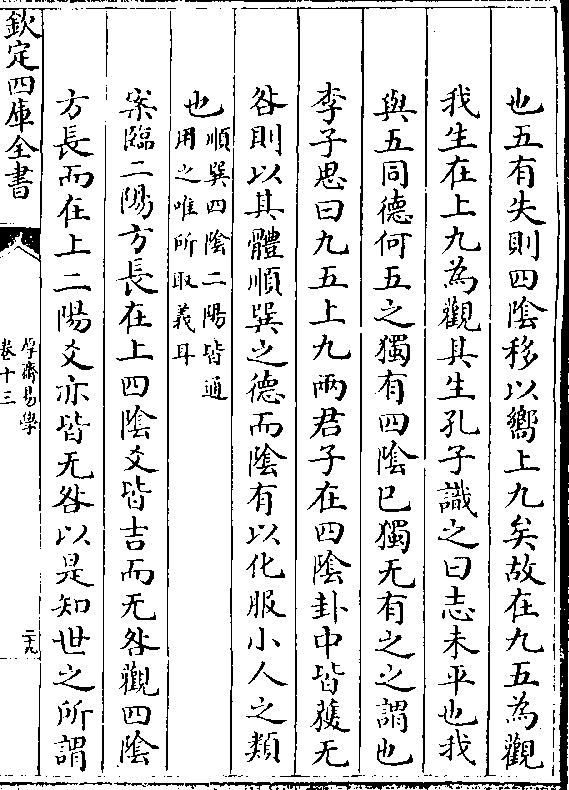 也五有失則四陰移以嚮上九矣故在九五為觀
我生在上九為觀其生孔子識之曰志未平也我
與五同德何五之獨有四陰已獨无有之之謂也
李子思曰九五上九兩君子在四陰卦中皆獲无
咎則以其體順巽之德而陰有以化服小人之類
也順巽四陰二陽皆通
用之唯所取義耳
案臨二陽方長在上四陰爻皆吉而无咎觀四陰
方長而在上二陽爻亦皆无咎以是知世之所謂
欽定四庫全書
厚齋易學
卷十三
二十九